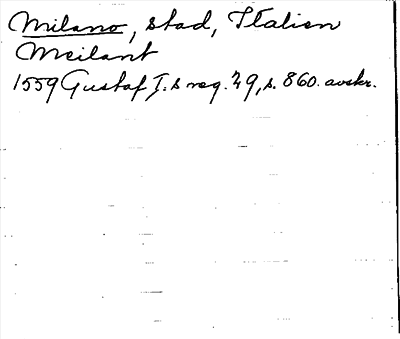 Milano, stad, Italien
Meilant
1559 Gustaf I.s reg. 29, s. 860. avskr.